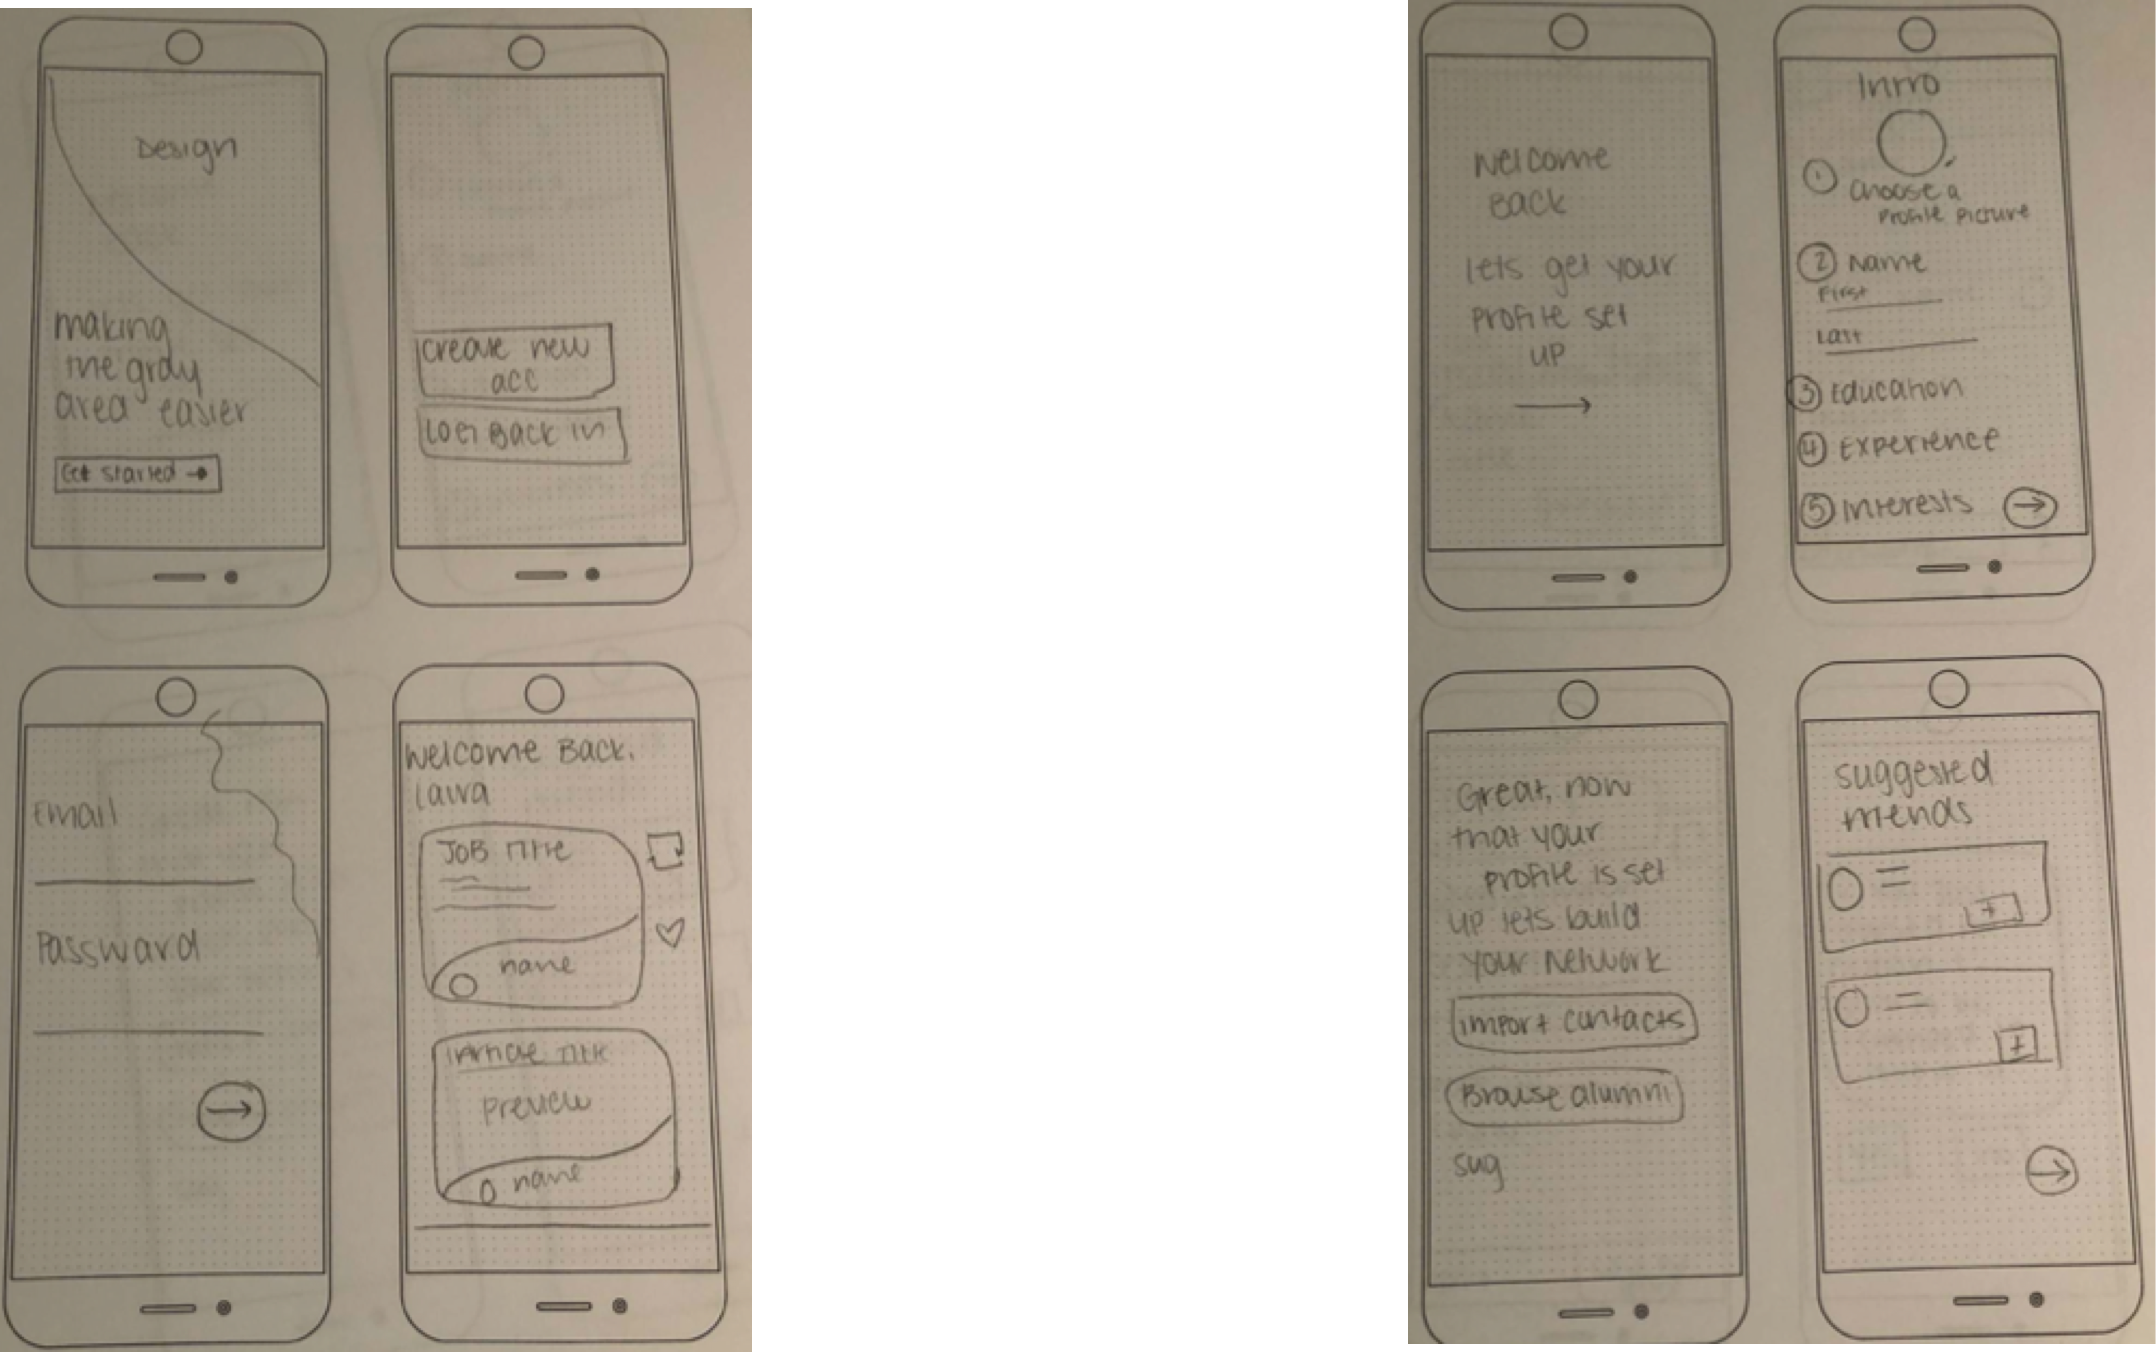 Design
making
the gray
area easier
Get started →
create new
acc
Log Back in
Email
Password
→
Welcome Back,
Laura
Job Title
name
Article Title
Preview
name
Welcome
Back
lets get your
profile set
up
→
Intro
1 Choose a
Profile Picture
2 Name
First
Last
3 Education
4 Experience
5 Interests →
Great, now
that your
profile is set
up lets build
your network
import contacts
Browse alumni
sug
suggested
friends
+
+
→